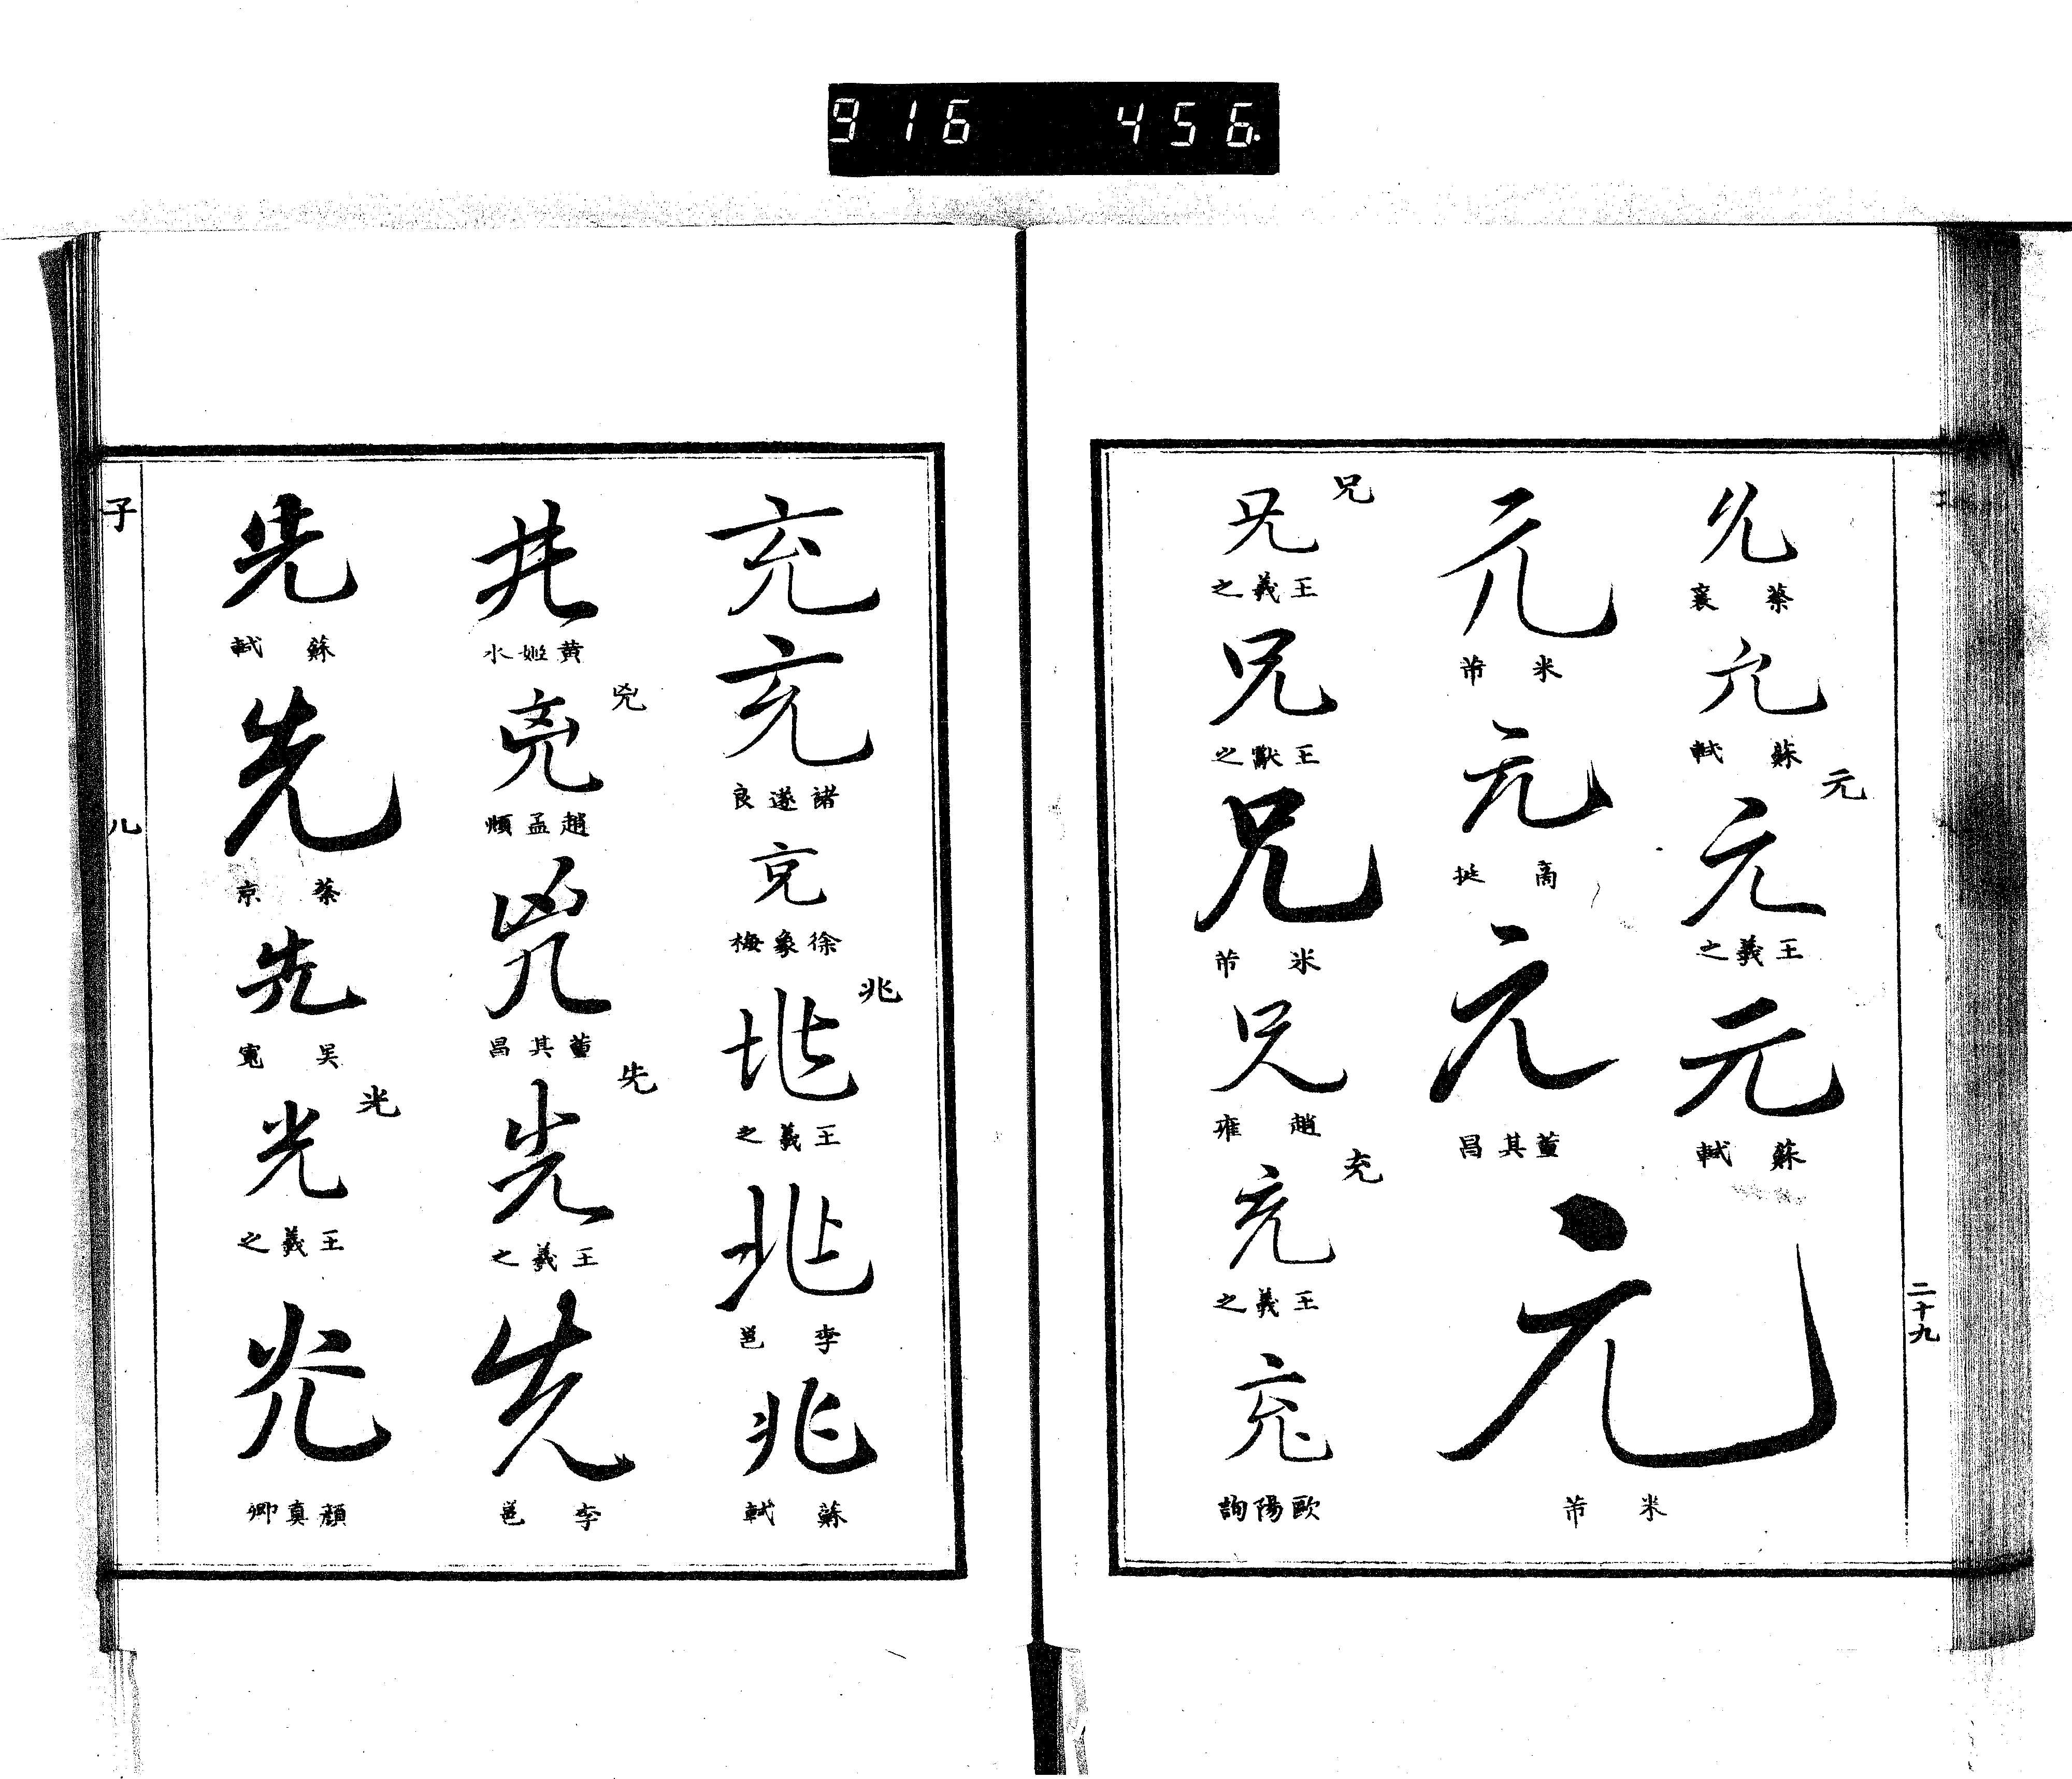 916 456
允
蔡襄
允
蘇軾
元
元
王羲之
元
蘇軾
元
米芾
元
高挻
元
董其昌
元
米芾
兄
兄
王羲之
兄
王獻之
兄
米芾
兄
趙雍
充
充
王羲之
充
歐陽詢
二十九
充
充
諸遂良
充
徐象梅
兆
兆
王羲之
兆
李邕
兆
蘇軾
黄姬水
兕
趙孟頫
兕
董其昌
先
先
王羲之
先
李邕
先
蘇軾
先
蔡京
先
吴寛
光
光
王羲之
光
顏真卿
子
儿